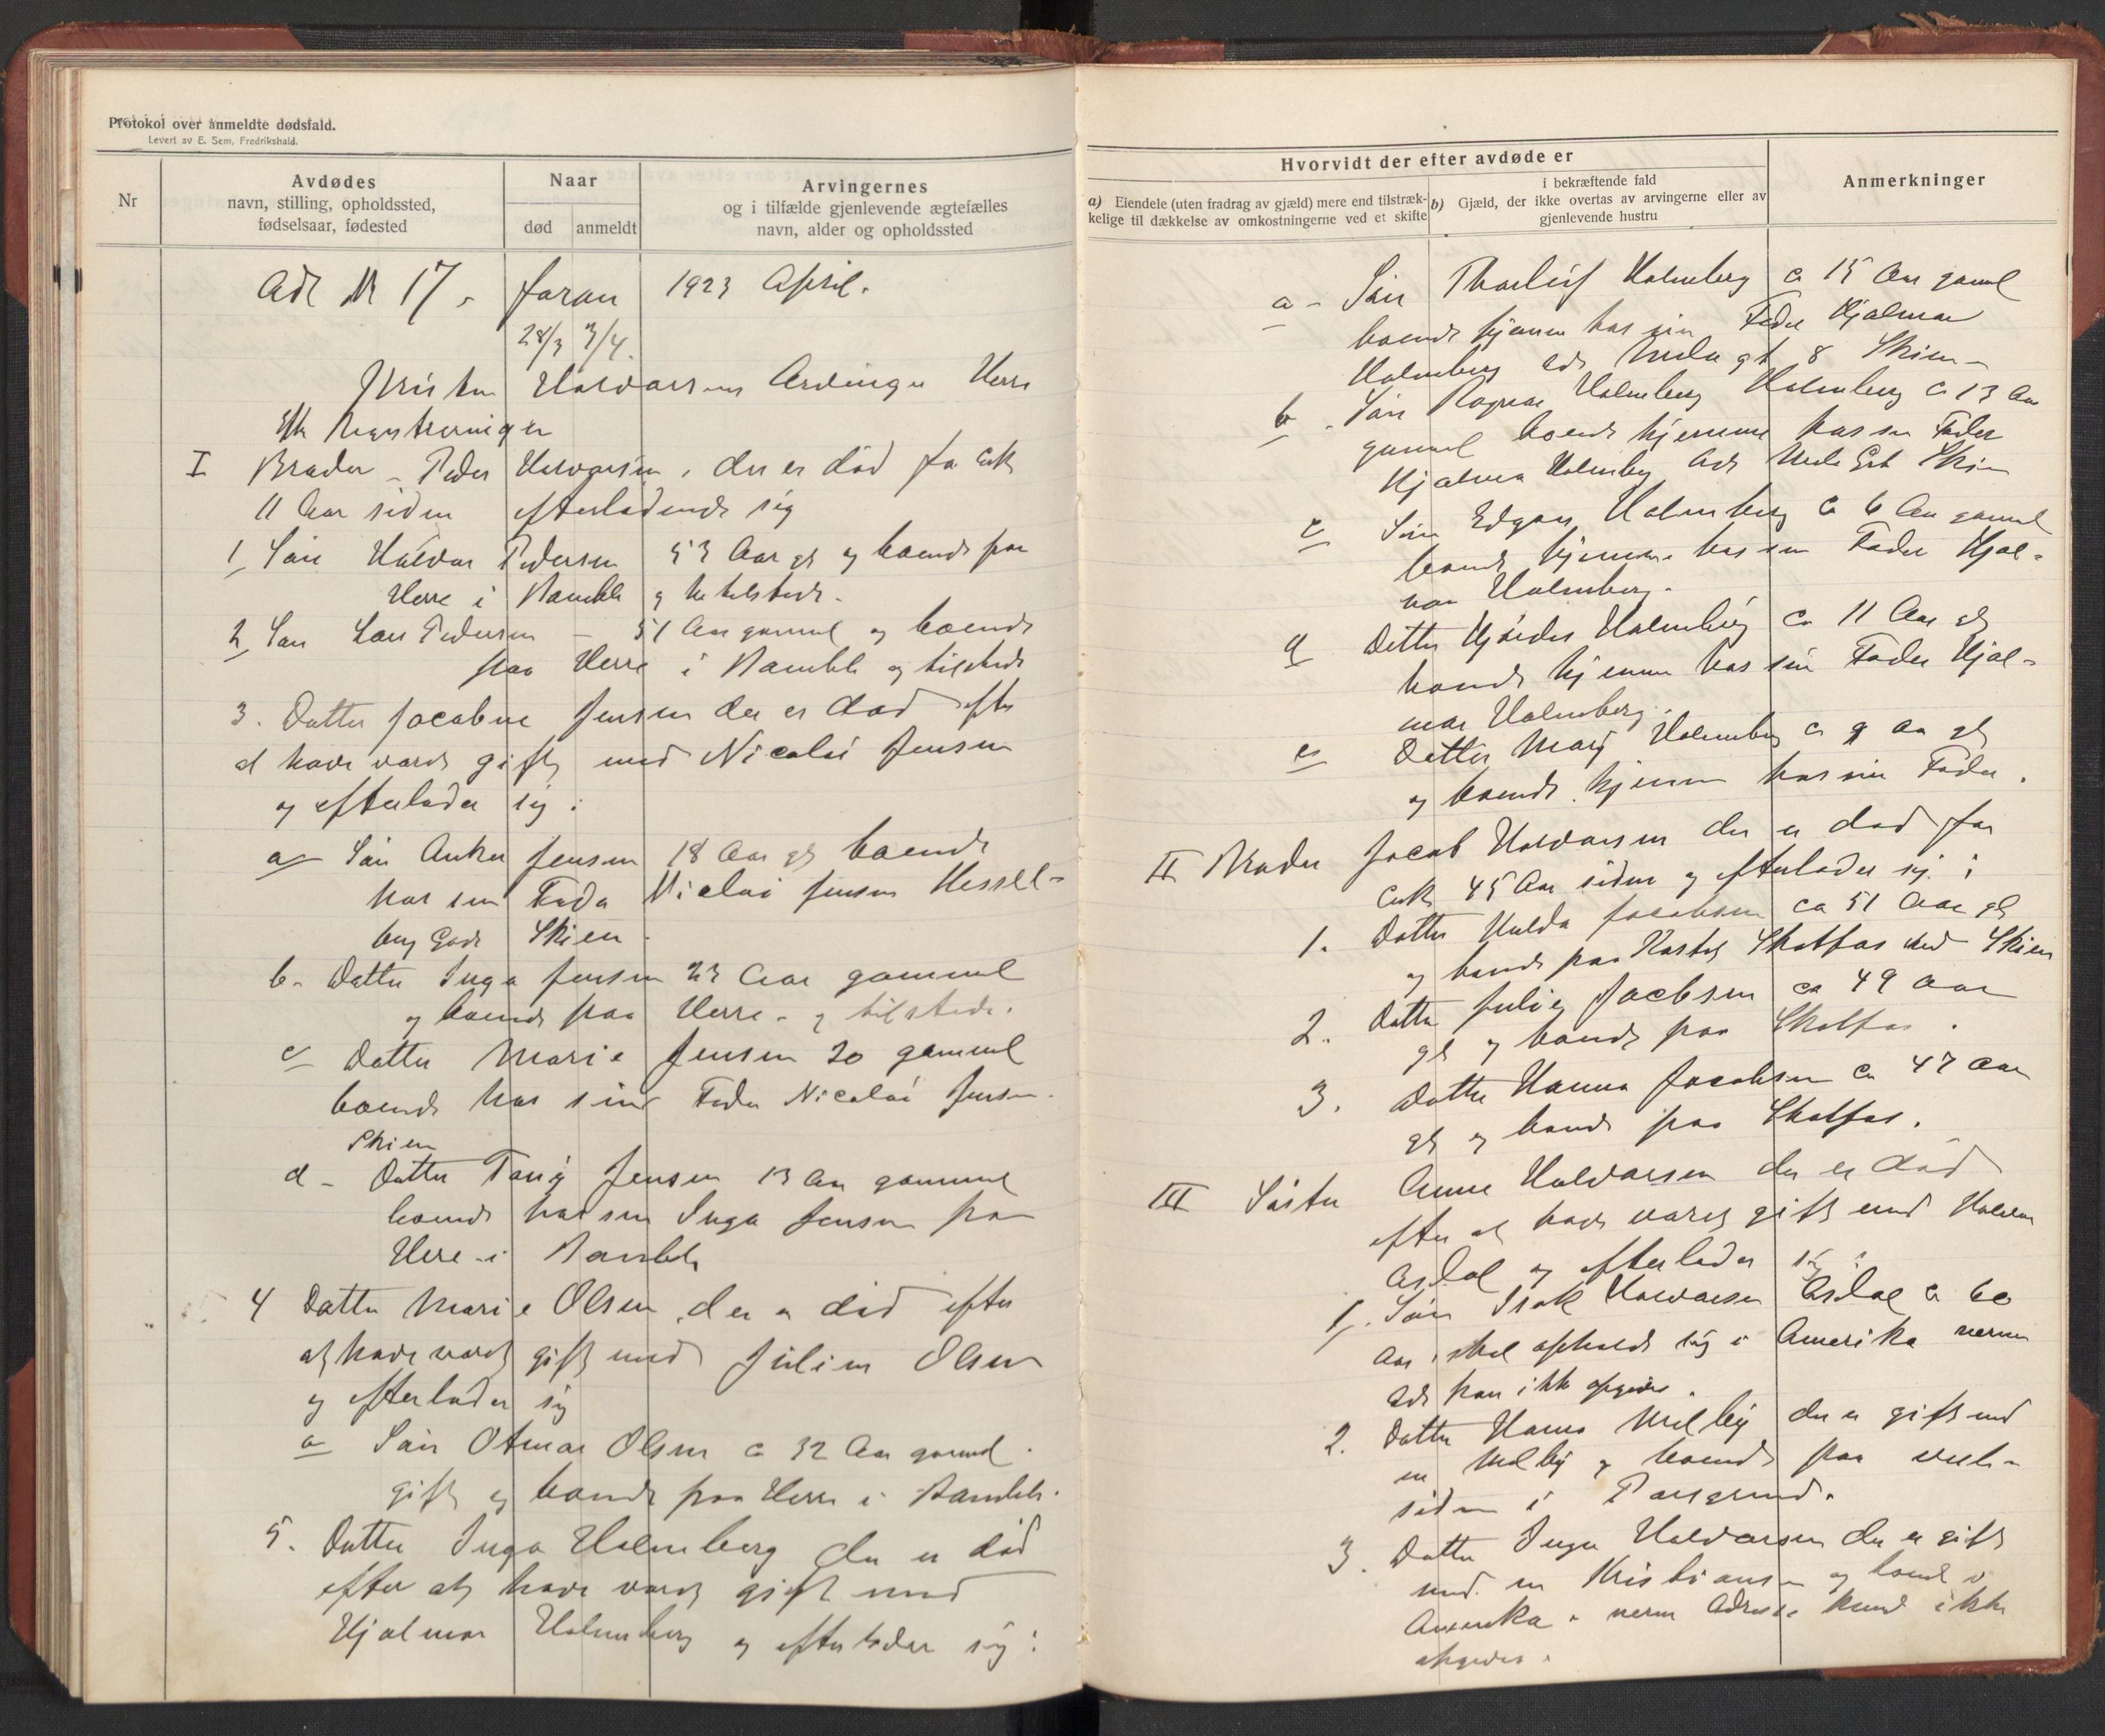 Protokol over anmeldte dødsfald.
Levert av E. Sem, Fredrikshald.
Nr
Avdødes
navn, stilling, opholdssted,
fødselsaar, fødested
Naar
død
anmeldt
Arvingernes
og i tilfælde gjenlevende ægtefælles
navn, alder og opholdssted
Ad Nr 17. foran 1923 April.
28/3 3/4.
Halvorsens Arvinger Herre
Efter Registreringen
I Broder – Peder Halvorsen, der er död for cirka
11 Aar siden efterladende sig
1 Sön Halvor Pedersen 53 Aar gl og boende paa
Herre i Bamble og tilstede.
2 Sön Lars Pedersen – 51 Aar gammel og boende
paa Herre i Bamble og tilstede
3. Datter Jacobine Jensen der er död efter
at have vært gift med Nicolai Jensen
og efterlader sig:
a Sön Anker Jensen 18 Aar gl boende
hos sin Fader Nicolai Jensen Hessel-
berg Gade Skien.
b. Datter Inga Jensen 23 Aar gammel
og boende paa Herre – og tilstede.
c Datter Marie Jensen 20 gammel
boende hos sin Fader Nicolai Jensen.
Skien
d – Datter Jensen 13 Aar gammel
boende hos sin Inga Jensen paa
Herre i Bamble
4 Datter Marie Olsen, der er död efter
at have vært gift med Julius Olsen
og efterlader sig
a Sön Otmar Olsen ca 32 Aar gammel.
gift og boende paa Herre i Bamble.
5. Datter Inga Holmberg der er död
efter at have vært gift med
Hjalmar Holmberg og efterlader sig:
Hvorvidt der efter avdøde er
a) Eiendele (uten fradrag av gjæld) mere end tilstræk-
kelige til dækkelse av omkostningerne ved et skifte
i bekræftende fald
b) Gjæld, der ikke overtas av arvingerne eller av
gjenlevende hustru
Anmerkninger
a – Sön Thorleif Holmberg ca 15 Aar gammel
boende hjemme hos sin Fader Hjalmar
Holmberg 8 Skien –
b. Sön Ragnar Holmberg Holmberg ca 13 Aar
gammel boende hjemme hos sin Fader
Hjalmar Holmberg Skien
c Sön Edgar Holmberg ca 6 Aar gammel
boende hjemme hos sin Fader Hjal-
mar Holmberg.
d Datter Hjördis Holmberg ca 11 Aar gl
boende hjemme hos sin Fader Hjal-
mar Holmberg.
e Datter Mary Holmberg ca 9 Aar gl
og boende hjemme hos sin Fader.
II Broder Jacob Halvorsen der er död for
cirka 45 Aar siden og efterlader sig:
1. Datter Hulda Jacobsen ca 51 Aar gl
og boende paa Skotfos ved Skien
2. Datter Julie Jacobsen ca 49 Aar
gl og boende paa Skotfos.
3. Datter Hanna Jacobsen ca 47 Aar
gl og boende paa Skotfos.
III Söster Anne Halvorsen der er död
efter at have været gift med Halvor
Asdal og efterlader sig
1. Sön Isak Halvorsen Asdal ca 60
Aar, skal opholde sig i Amerika nærmere
Adr kan ikke opgives.
2. Datter Melby der er gift med
en Melby og boende paa vest-
siden i Porsgrund.
3. Datter Inga Halvorsen der er gift
med en Kristiansen og boende i
Amerika – nærmere Adresse kunde ikke
opgives.